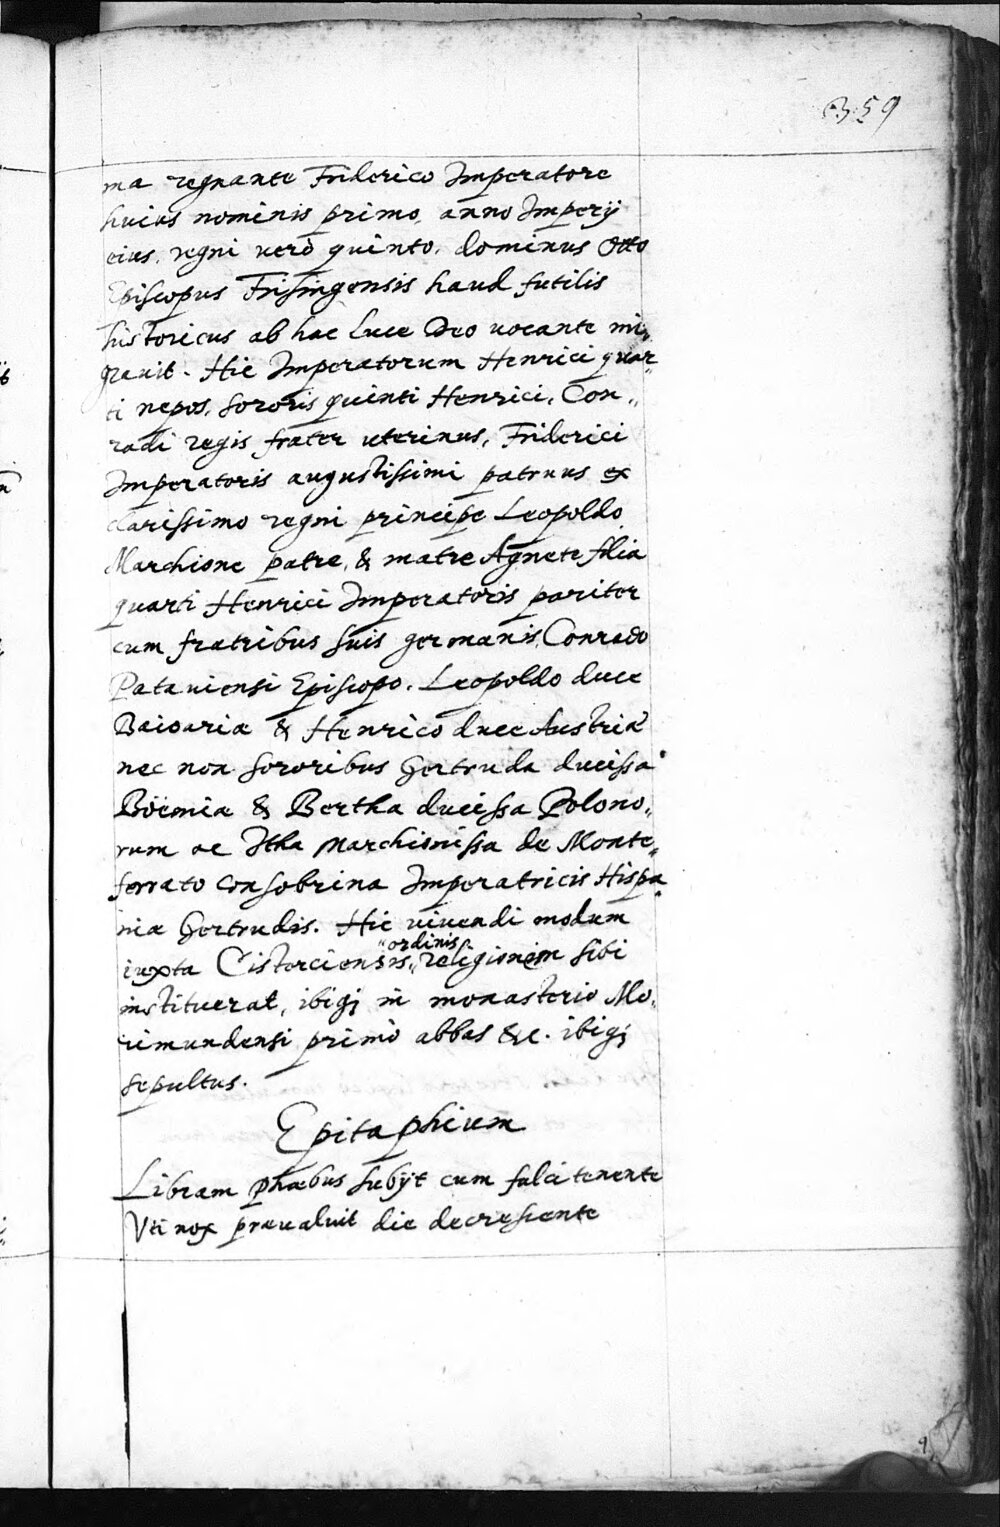 359
ma regnante Friderico Imperatore
huius nominis primo, anno Imperij
eius, regni verò quinto, dominus Otto
Episcopus Frisingensis haud futilis
historicus ab hac luce Deo uocante mi„
grauit. Hic Imperatorum Henrici quar„
ti nepos, sororis quinti Henrici, Con„
radi regis frater uterinus, Friderici
Imperatoris augustissimi patruus ex
clarissimo regni principe Leopoldo
Marchione patre, & matre Agnete filia
quarti Henrici Imperatoris pariter
cum fratribus suis germanis, Conrado
Patauiensi Episcopo. Leopoldo duce
Baioariæ & Henrico duce Austriæ
nec non sororibus Gertruda ducissa
Boëmiæ & Bertha ducissa Polono„
rum ac Itha Marchionissa de Monte„
ferrato consobrina Imperatricis Hispa„
niæ Gertrudis. Hic uiuendi modum
„ordinis„
iuxta Cisterciensis„ religionem sibi
instituerat, ibiq; in monasterio Mo„
rimundensi primò abbas &c. ibiq;
sepultus.
Epitaphium
Libram phœbus subijt cum falci tenente
Vti nox præualuit die decrescente